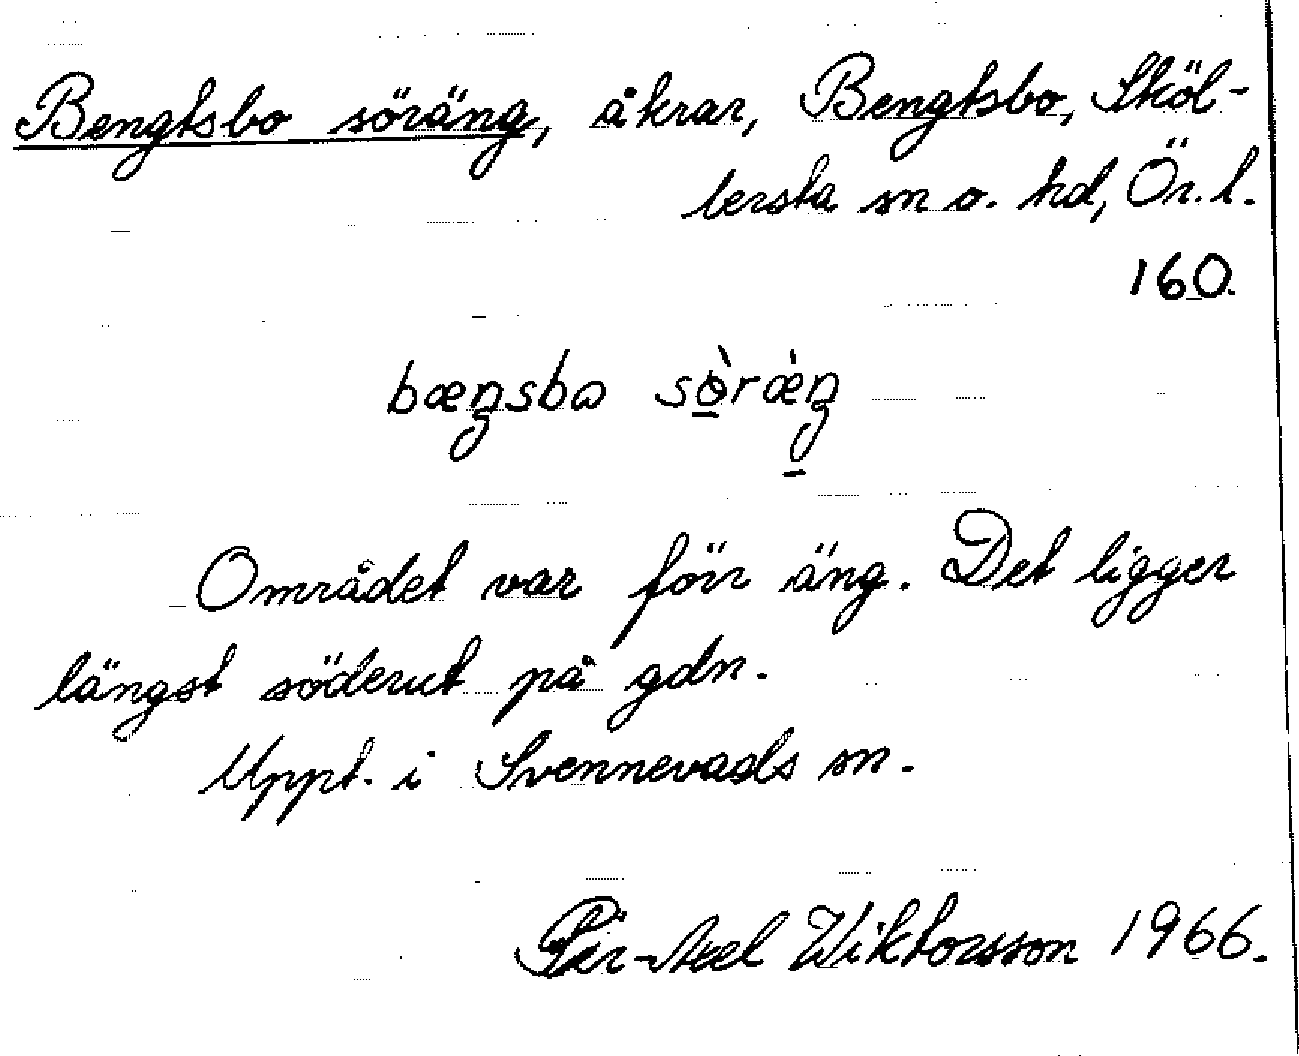 Bengtsbo söräng, åkrar, Bengtsbo, Sköl-
lersta sn o. hd, Ör. l.
160.
bæŋsbω sø̀ræ̀ŋ
Området var förr äng. Det ligger
längst söderut på gdn.
Uppt. i Svennevads sn.
Per-Axel Wiktorsson 1966.